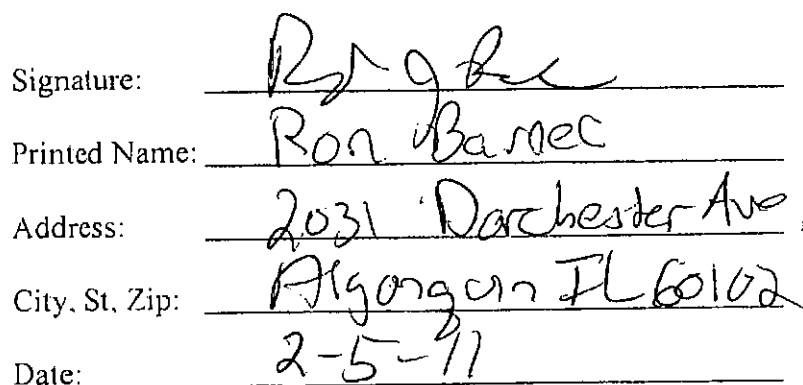 Signature:
Printed Name: Ron Barnec
Address: 2031 Dorchester Ave
City, St, Zip: Algonquin IL 60102
Date: 2-5-11